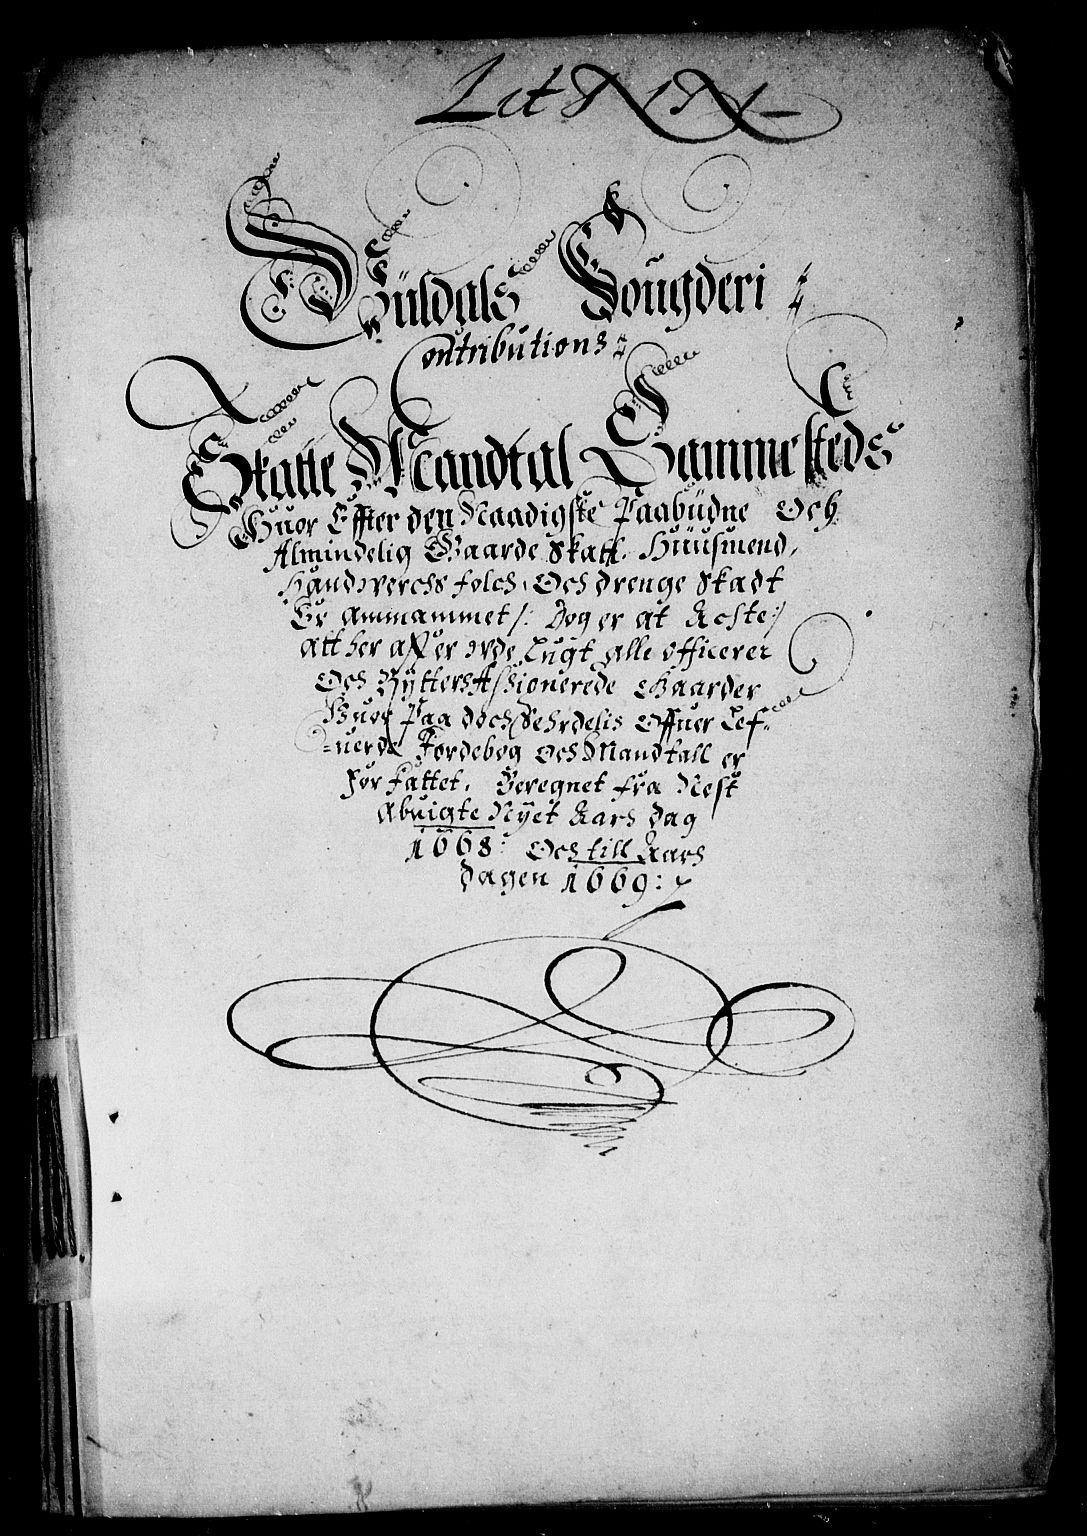 Lit
Güldals Fougderi
Contributions
Skatte Mandtal Sammesteds
Huor Effter den Naadigste Paabüdne Och
Almindelig Gaarde Skatt. Huusmend,
Handtwerchs folch, Och drenge Skadt
Er Anmammet /: Dog er at Acste :/
att her ere vde Lugt alle officerer
Och Rÿtters Gaarder
Huor Paa doch Sehrdelis Offuer Lef-
-uerde Jordebog och Mandtall er
forfattet, Beregnet fra Nest
Abuigte Nyet Aars dag
1668: Och till Aars
dagen 1669: